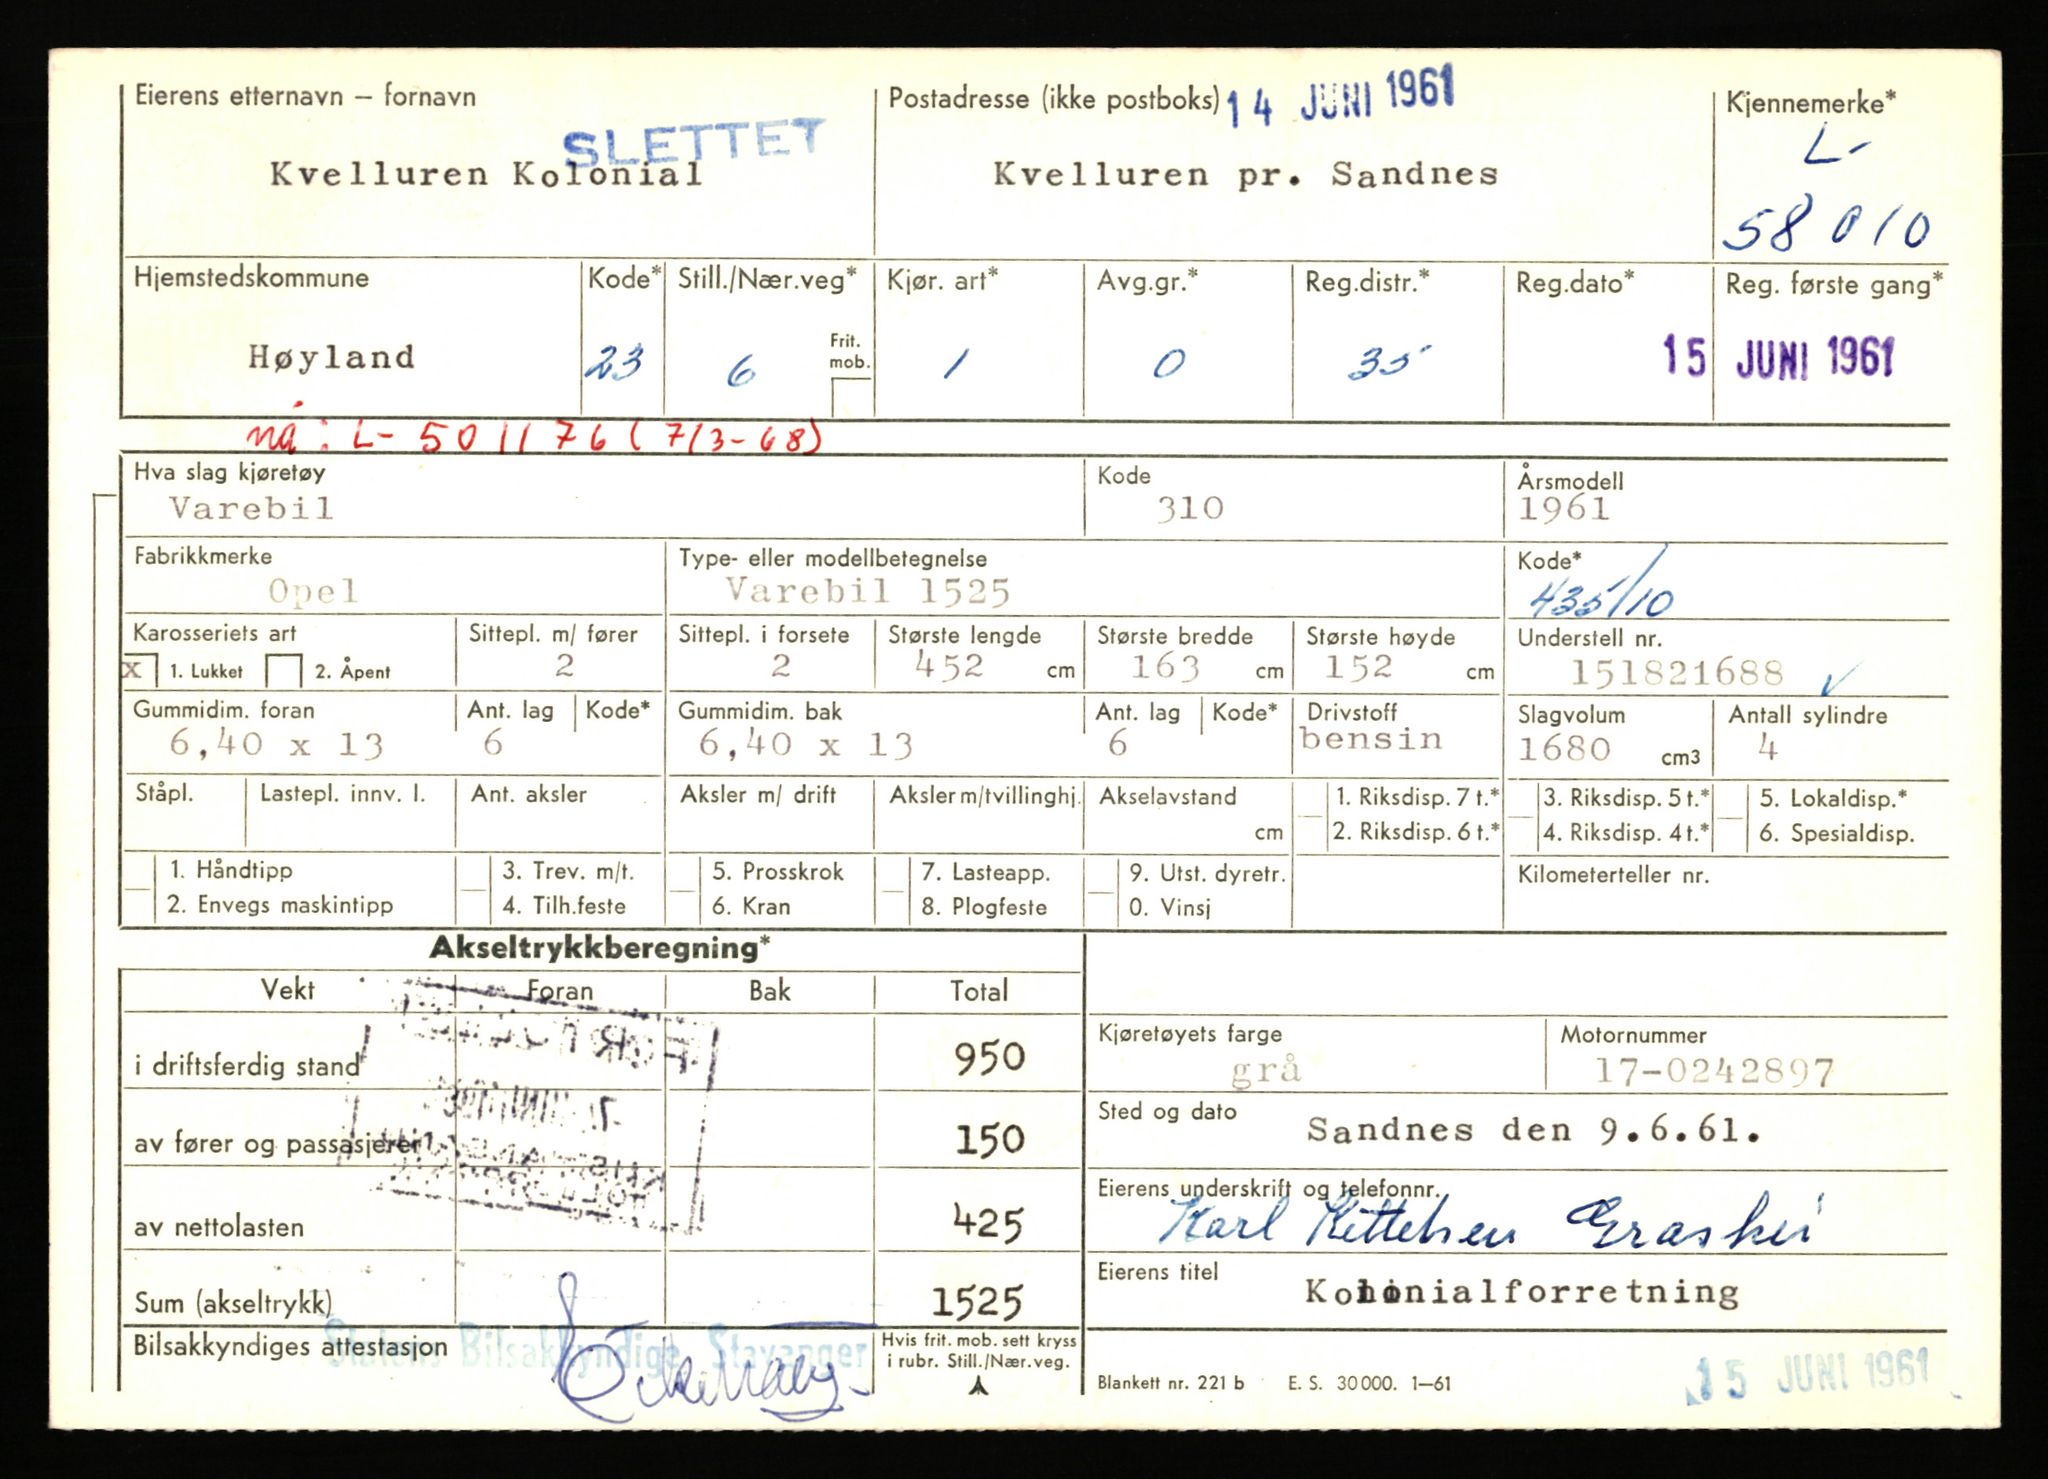 Eierens etternavn – fornavn
Postadresse (ikke postboks) 14 JUNI 1961
Kjennemerke*
SLETTET
L-
Kvelluren Kolonial
Kvelluren pr. Sandnes
58010
Hjemstedskommune Kode* Still./Nær.veg* Kjør. art* Avg.gr.* Reg.distr.* Reg.dato* Reg. første gang*
Frit. mob.
Høyland 23 6 1 0 35 15 JUNI 1961
nå: L-501176 (7/3-68)
Hva slag kjøretøy Kode Årsmodell
Varebil 310 1961
Fabrikkmerke Type- eller modellbetegnelse Kode*
Opel Varebil 1525 435/10
Karosseriets art Sittepl. m/ fører Sittepl. i forsete Største lengde Største bredde Største høyde Understell nr.
x 1. Lukket 2. Åpent 2 2 452 cm 163 cm 152 cm 151821688 ✓
Gummidim. foran Ant. lag Kode* Gummidim. bak Ant. lag Kode* Drivstoff Slagvolum Antall sylindre
6,40 x 13 6 6,40 x 13 6 bensin 1680 cm3 4
Ståpl. Lastepl. innv. l. Ant. aksler Aksler m/ drift Aksler m/tvillinghj. Akselavstand cm 1. Riksdisp. 7 t.* 3. Riksdisp. 5 t.* 5. Lokaldisp.*
2. Riksdisp. 6 t.* 4. Riksdisp. 4 t.* 6. Spesialdisp.
1. Håndtipp 3. Trev. m/t. 5. Prosskrok 7. Lasteapp. 9. Utst. dyretr. Kilometerteller nr.
2. Envegs maskintipp 4. Tilh.feste 6. Kran 8. Plogfeste 0. Vinsj
Akseltrykkberegning*
Vekt Foran Bak Total
i driftsferdig stand 950
Kjøretøyets farge Motornummer
grå 17-0242897
av fører og passasjerer 150
Sted og dato Sandnes den 9.6.61.
av nettolasten 425
Eierens underskrift og telefonnr.
Karl Kittelsen
Sum (akseltrykk) 1525
Eierens titel Kolonialforretning
Bilsakkyndiges attestasjon
Statens Bilsakkyndige Stavanger
Hvis frit. mob. sett kryss
i rubr. Still./Nær.veg.
Blankett nr. 221 b E. S. 30000. 1–61
15 JUNI 1961